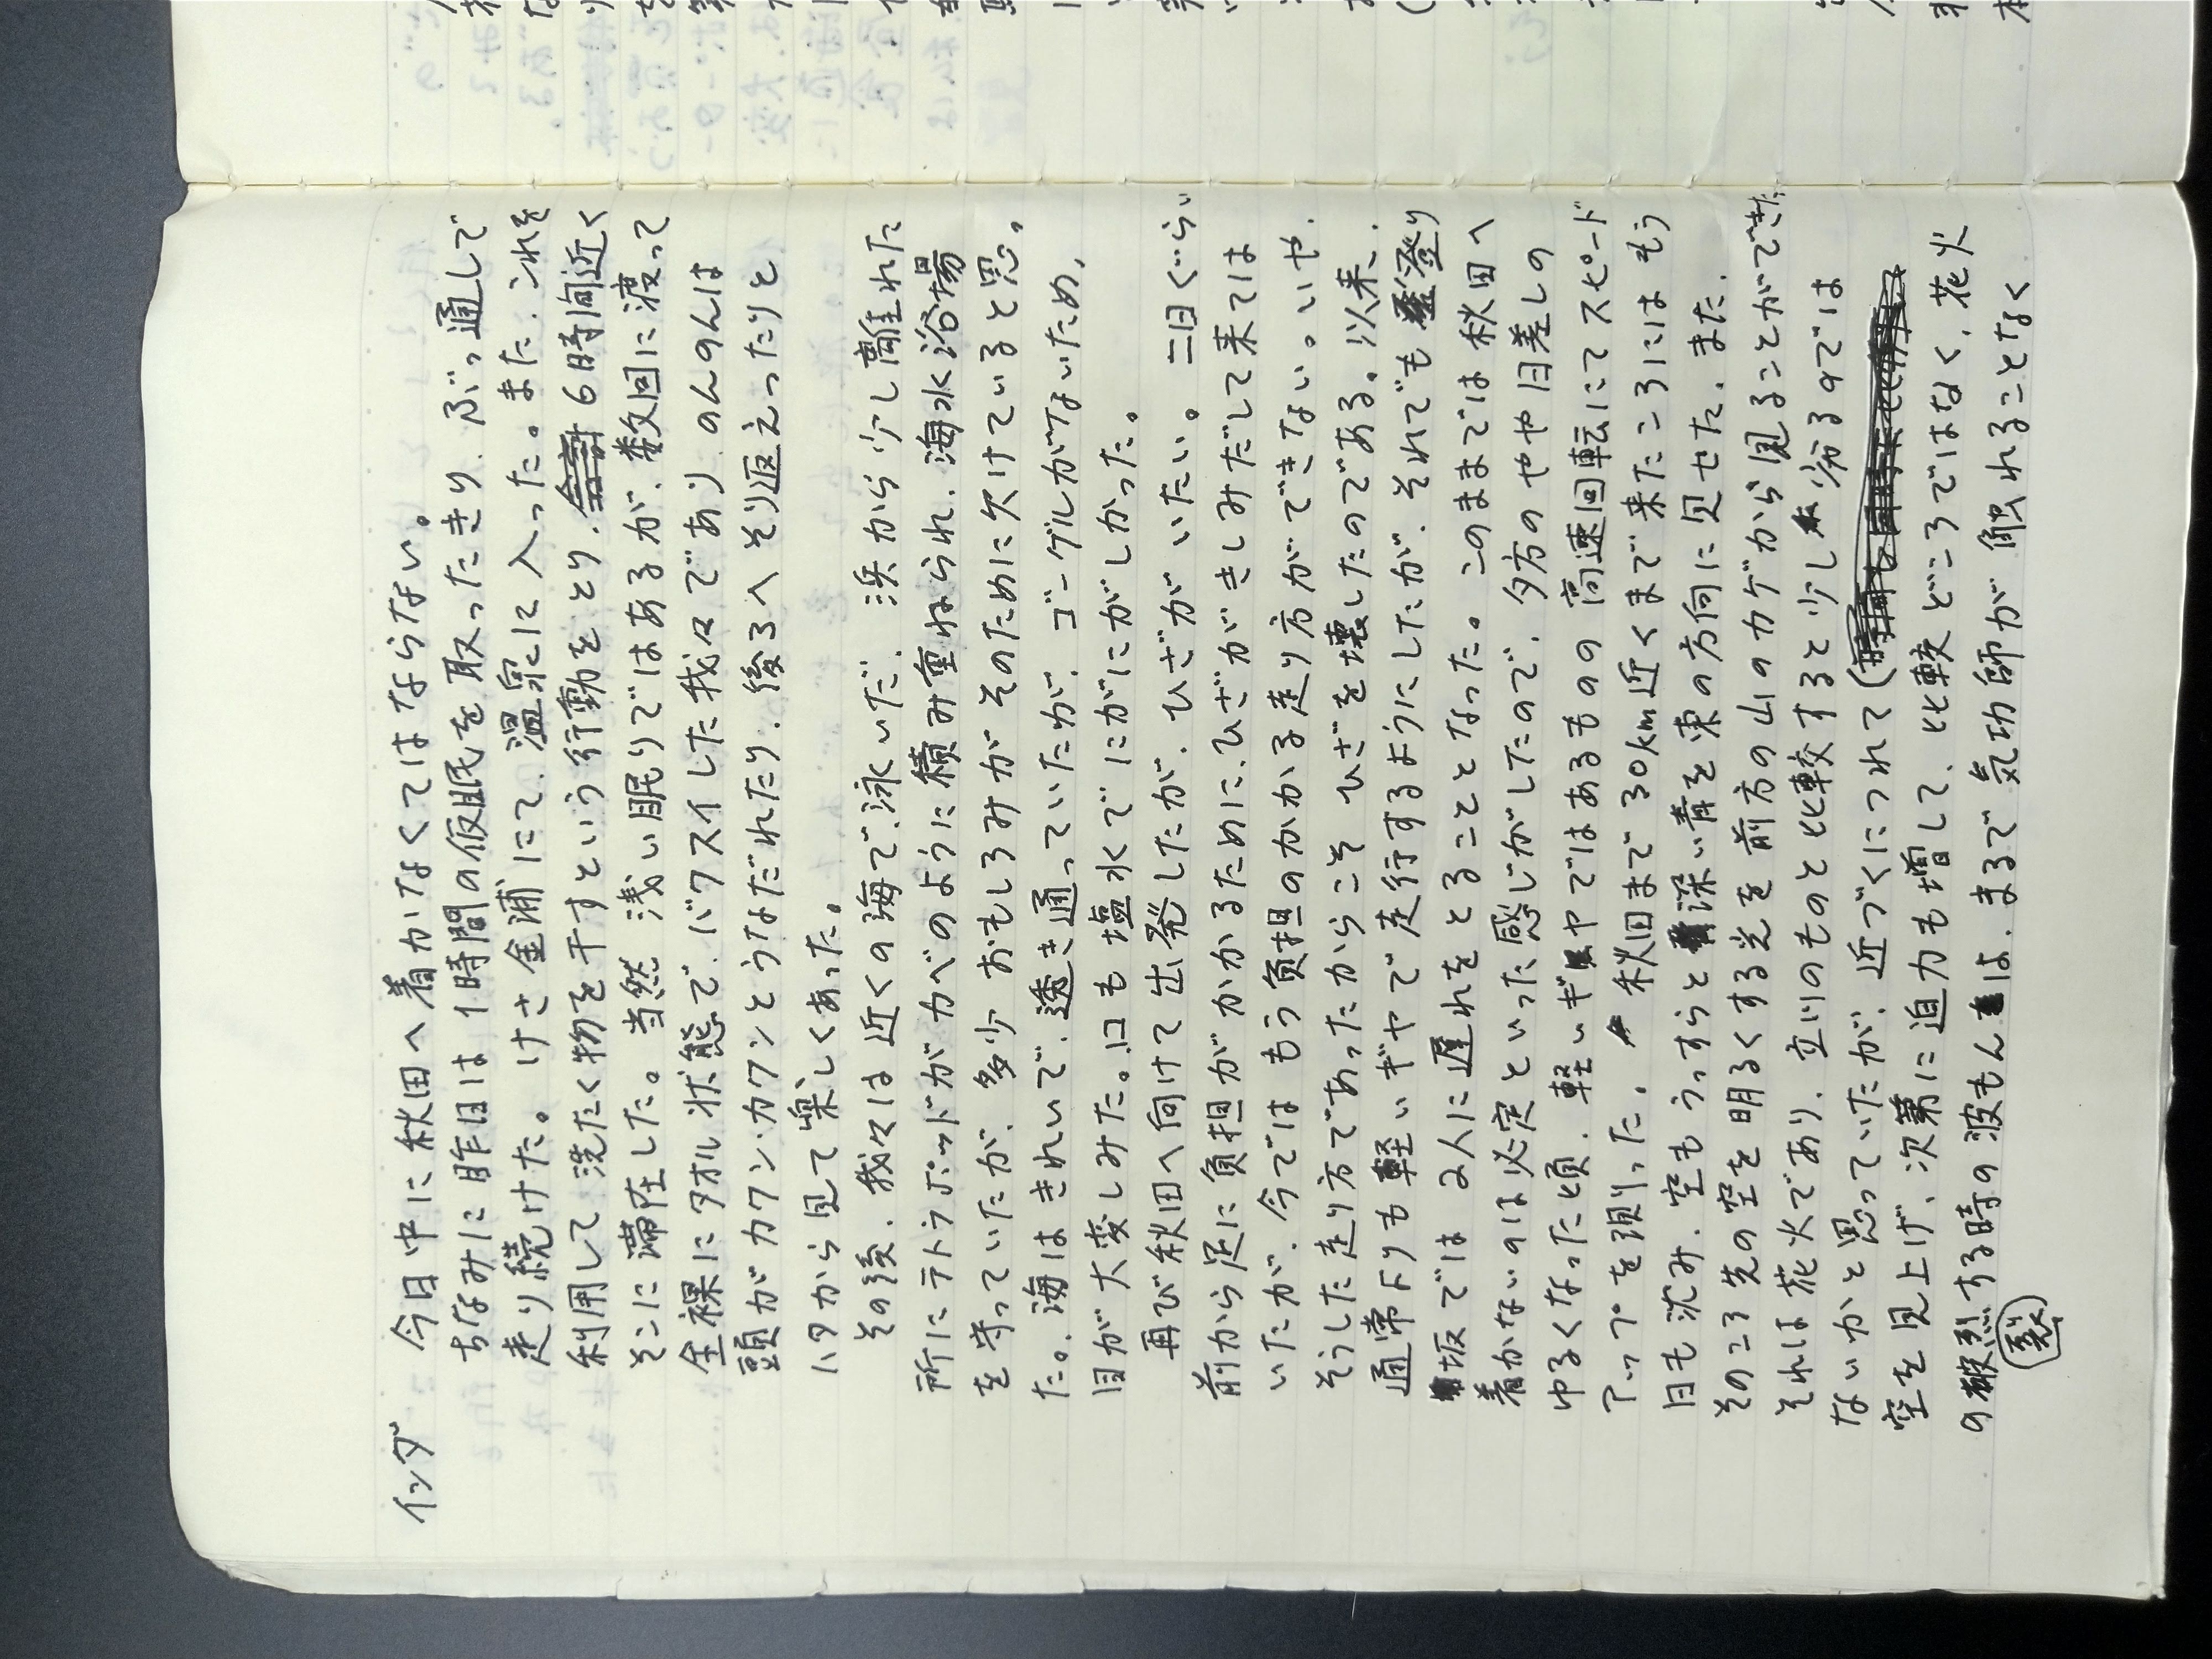 イッダ 今日中に秋田へ着かなくてはならない。
ちなみに昨日は1時間の仮眠を取ったきり、ぶっ通しで
走り続けた。けさ金浦にて、温泉に入った。また、これを
利用して洗たく物を干すという行動をとり、6時間近く
そこに滞在した。当然浅い眠りではあるが、数回に渡って
全裸にタオル状態で、バクスイした我々であり、のんのんは
頭がカクン、カクンとうなだれたり、後ろへそり返えったりと
ハタから見て楽しくあった。
その後、我々は近くの海で、泳いだ。浜から少し離れた
所にテトラポッドがカベのように積み重ねられ、海水浴場
を守っていたが、多少おもしろみがそのために欠けていると思っ
た。海はきれいで、透き通っていたが、ゴーグルがないため、
目が大変しみた。口も塩水でにがにがしかった。
再び秋田へ向けて出発したが、ひざがいたい。二日ぐらい
前から足に負担がかかるために、ひざがきしみだして来ては
いたが、今ではもう負担のかかる走り方ができない。いや、
そうした走り方であったからこそひざを壊したのである。以来、
通常よりも軽いギヤで走行するようにしたが、それでも登り
坂では2人に遅れをとることとなった。このままでは秋田へ
着かないのは必定といった感じがしたので、夕方のやや日差しの
ゆるくなった頃、軽いギヤではあるものの高速回転にてスピード
アップを頭った。秋田まで30km近くまで来たころにはもう
日も沈み、空もうっすらと深い青を東の方向に見せた。また、
そのころ先の空を明るくする光を前方の山のカゲから見ることができた
それは花火であり、立川のものと比較すると少し劣るのでは
ないかと思っていたが、近づくにつれて(
空を見上げ、次第に迫力も増して、比較どころではなく、花火
の破烈する時の波もんは、まるで気功師が触れることなく
裂